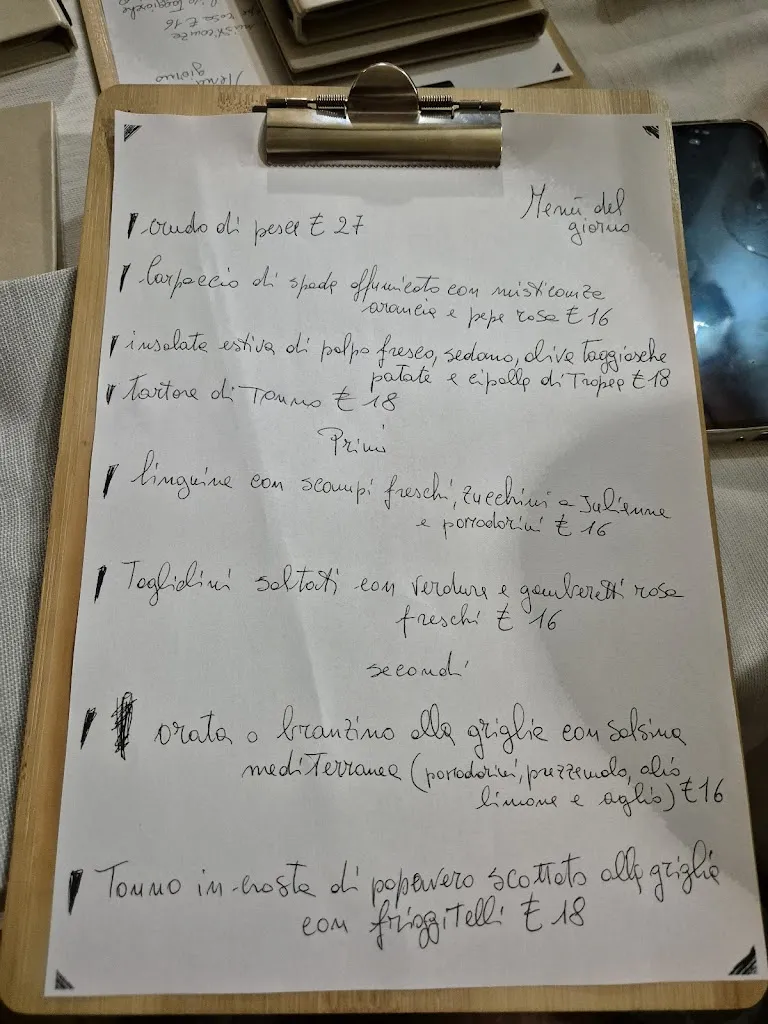 Menù del
giorno
crudo di pesce € 27
Carpaccio di spada affumicato con misticanza
arancia e pepe rosa € 16
insalata estiva di polpo fresco, sedano, oliva taggiasche
patate e cipolla di Tropea € 18
tartare di Tonno € 18
Primi
linguine con scampi freschi, zucchini a Julienne
e pomodorini € 16
Tagliolini saltati con verdure e gamberetti rosa
freschi € 16
secondi
orata o branzino alla griglia con salsina
mediterranea (pomodorini, prezzemolo, olio
limone e aglio) € 16
Tonno in crosta di papavero scottato alla griglia
con friggitelli € 18